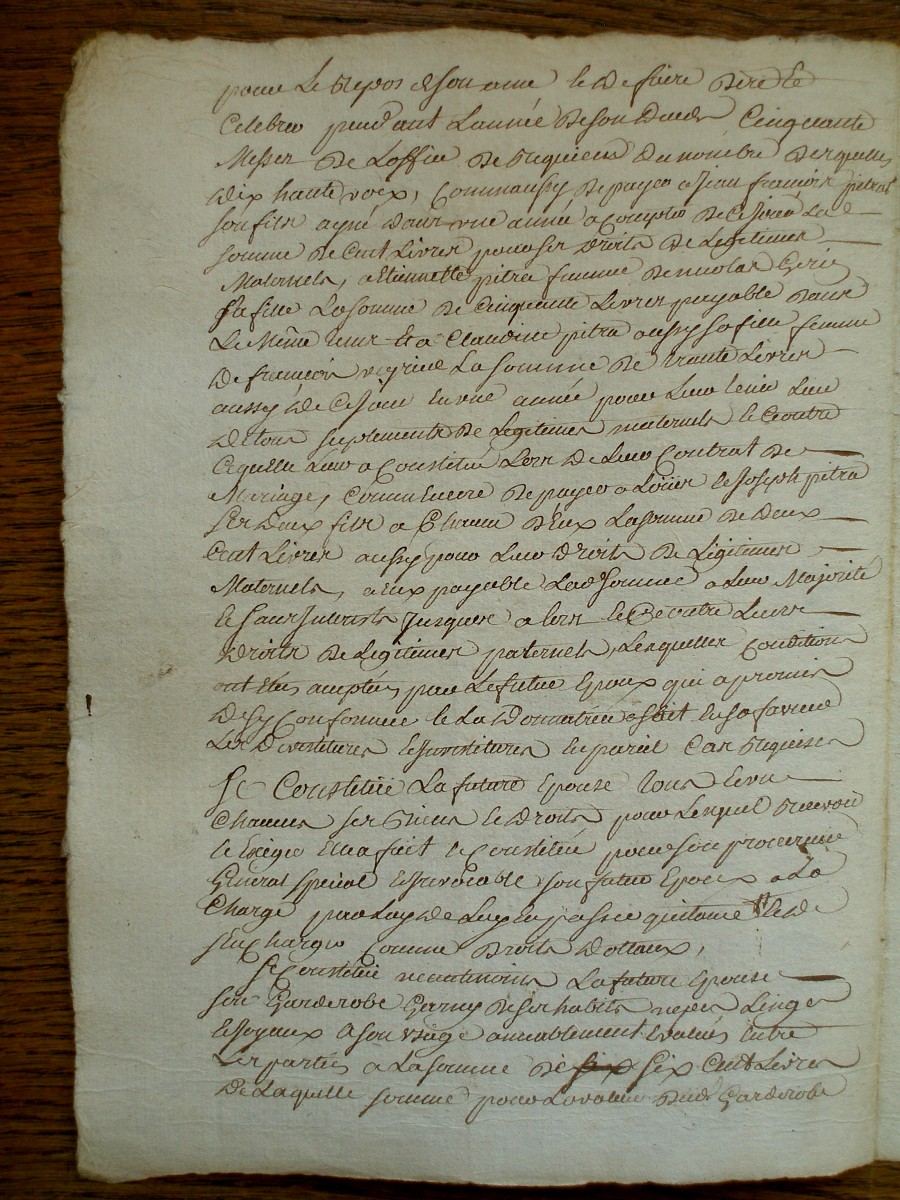 pour Le Repos de son ame et de faire dire et
Celebrer pendant Lannée de son Deces Cinquante
Messes de Loffice de Requiem du nombre desquelles
dix haute voix, Comm'aussy de payer a Jean françois pitrat
son fils ayné dans une année a Compter de Ce Jour La
somme de Cent Livres pour ses droits de Legitimes
Maternels, a Etiennette pitra femme de nicolas
sa fille La somme de Cinquante Livres payable dans
Le Même tems Et a Claudine pitra aussy sa fille femme
de françois La somme de trente Livres
aussy de Ce Jour en une année pour Leur tenir Lieu
de tous suplements de Legitimes maternels et outre
Ce quelle Leur a Constitué Lors de Leur Contrat de
Mariage, Comm'encore de payer a et Joseph pitra
ses deux fils a Chacun d'Eux La somme de deux
Cent Livres aussy pour Leur droits de Legitimes
Maternels, a Eux payable Lad somme a Leur Majorité
et sans Interests Jusques a Lors et Ce outre Leurs
droits de Legitimes paternels, Lesquelles Conditions
ont étés acceptées par Le futur Epoux qui a promis
de sy Conformer et La donnatrice s'est En sa faveur
En pareil Cas Requises
se Constitüe La future Epouse tous Et un
Chacuns ses Biens et droits pour Lesquels Recevoir
et Exiger Elle a fait et Constitué pour son procureur
Général spécial Irrevocable son futur Epoux a La
Charge par Luy de Luy En passer quitance et de
s'En Charger Comme droits dottaux,
se Constitüe neantmoins La future Epouse
son Garderobe Garny de ses habits Linge
et Joyaux a son usage amiablement Evalués Entre
Les parties a La somme de six Cent Livres
de Laquelle somme pour La valeur dud Garderobe